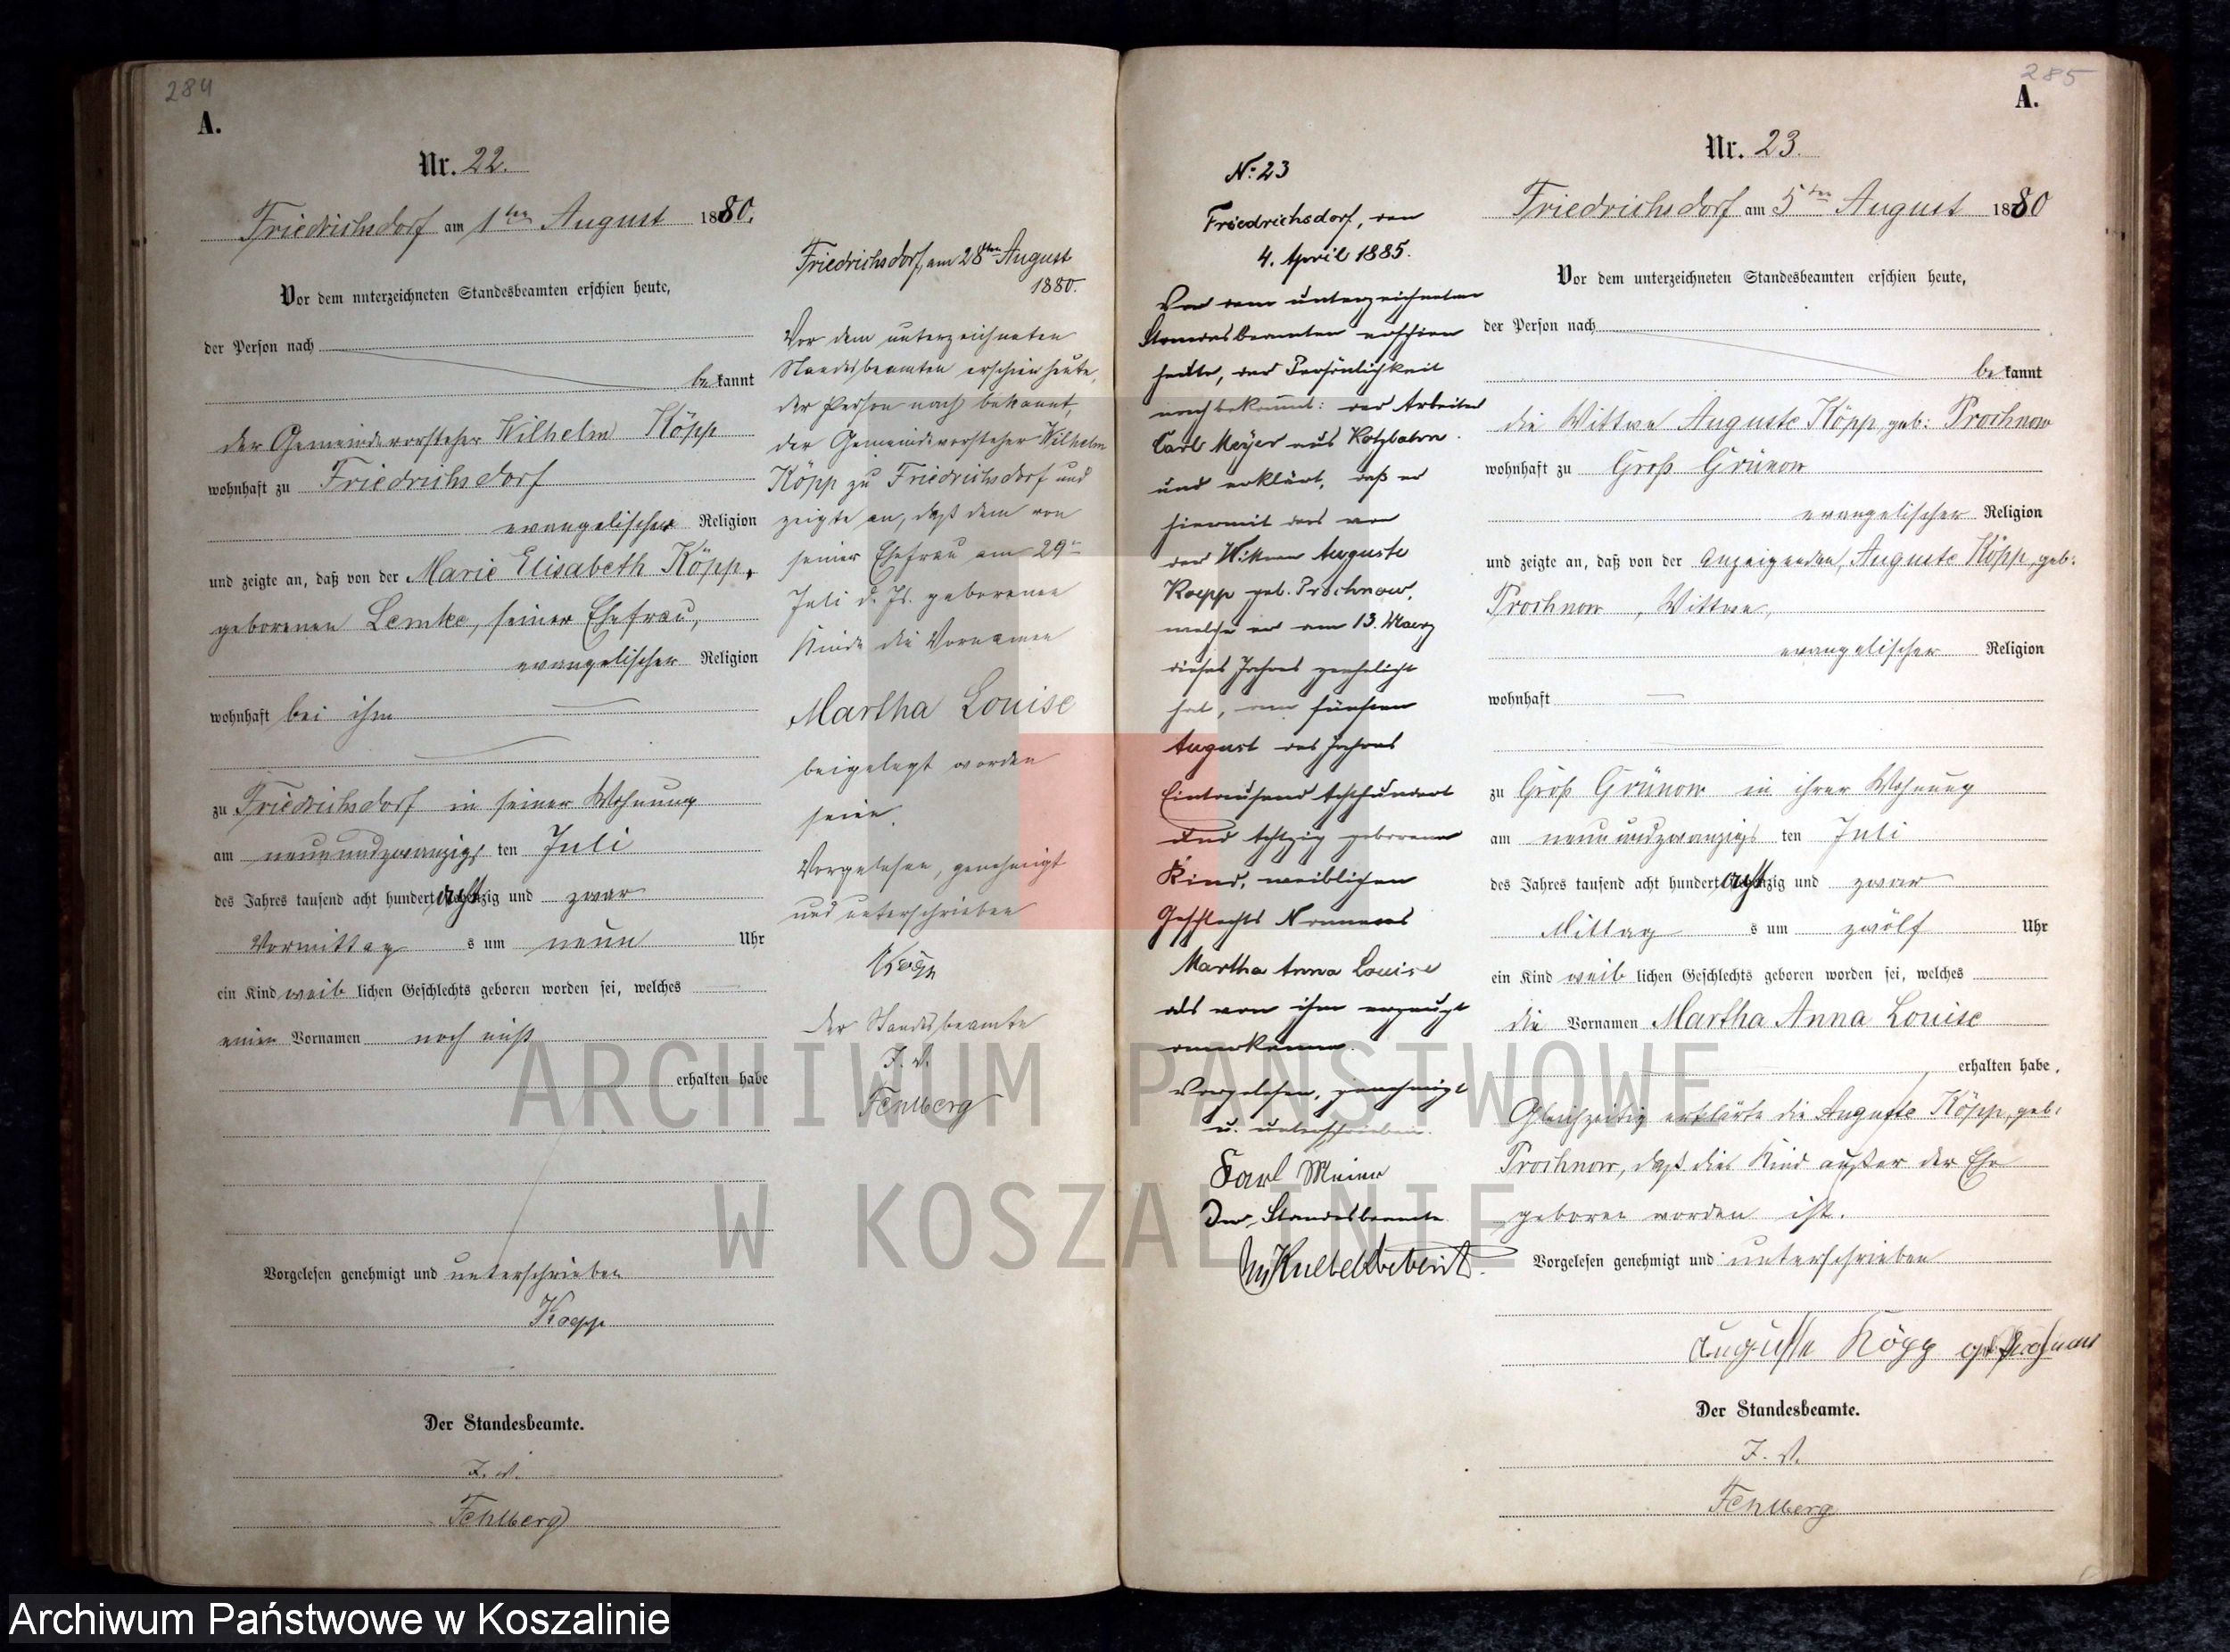 284
A.
Nr. 22.
Friedrichsdorf am 1ten August 1880.
Vor dem unterzeichneten Standesbeamten erschien heute,
der Person nach
bekannt
der Gemeindevorsteher Wilhelm Köpp
wohnhaft zu Friedrichsdorf
evangelischer Religion
und zeigte an, daß von der Marie Elisabeth Köpp,
geborenen Lemke, seiner Ehefrau,
evangelischer Religion
wohnhaft bei ihm
zu Friedrichsdorf in seiner Wohnung
am neunundzwanzigs ten Juli
des Jahres tausend acht hundert achtzig und zwar
Vormittag s um neun Uhr
ein Kind weib lichen Geschlechts geboren worden sei, welches
einen Vornamen noch nicht
erhalten habe
Vorgelesen genehmigt und unterschrieben
Koepp
Der Standesbeamte.
I. V.
Fehlberg
Friedrichsdorf, am 28ten August
1880.
Vor dem unterzeichneten
Standesbeamten erschien heute,
der Person nach bekannt,
der Gemeindevorsteher Wilhelm
Köpp zu Friedrichsdorf und
zeigte an, daß dem von
seiner Ehefrau am 29ten
Juli d. Js. geborenen
Kinde die Vornamen
Martha Louise
beigelegt worden
seien.
Vorgelesen, genehmigt
und unterschrieben
Koepp
Der Standesbeamte
I. V.
Fehlberg
N: 23
Friedrichsdorf, den
4. April 1885.
Vor dem unterzeichneten
Standesbeamten erschien
heute, der Persönlichkeit
nach bekannt: der Arbeiter
Carl Meyer aus
und erklärt, daß er
hiermit das von
der Wittwe Auguste
Koepp geb. Prochnow,
welche er am 13. Maerz
dieses Jahres geehelicht
hat, am fünften
August des Jahres
Eintausend Achthundert
und Achtzig geborene
Kind, weiblichen
Geschlechts Namens
Martha Anna Louise
als von ihm erzeugt
anerkenne.
Vorgelesen, genehmigt
u. unterschrieben.
Karl Meier
Der Standesbeamte
285
A.
Nr. 23.
Friedrichsdorf am 5ten August 1880
Vor dem unterzeichneten Standesbeamten erschien heute,
der Person nach
bekannt
die Wittwe Auguste Köpp, geb: Prochnow
wohnhaft zu Groß Grünow
evangelischer Religion
und zeigte an, daß von der Anzeigenden, Auguste Köpp, geb:
Prochnow, Wittwe,
evangelischer Religion
wohnhaft
zu Groß Grünow in ihrer Wohnung
am neunundzwanzigs ten Juli
des Jahres tausend acht hundert achtzig und zwar
Mittag s um zwölf Uhr
ein Kind weib lichen Geschlechts geboren worden sei, welches
die Vornamen Martha Anna Louise
erhalten habe,
Gleichzeitig erklärte die Auguste Köpp, geb:
Prochnow, daß dies Kind außer der Ehe
geboren worden ist.
Vorgelesen genehmigt und unterschrieben
Auguste Köpp geb Prochnow
Der Standesbeamte.
I. V.
Fehlberg
ARCHIWUM PAŃSTWOWE
W KOSZALINIE
Archiwum Państwowe w Koszalinie